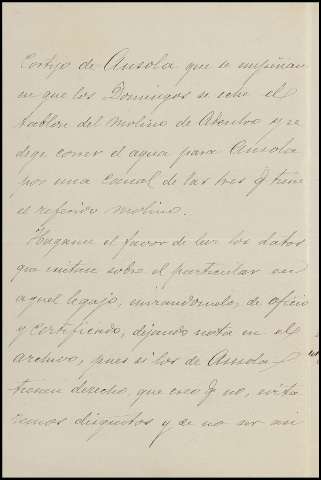 Cortijo de Ansola que se empeñan
en que los Domingos se eche el
tablon del Molino de Adentro y se
deje correr el agua para Ansola
por una Canal de las tres q tiene
el referido molino.
Hagame el favor de leer los datos
que existan sobre el particular en
aquel legajo, de oficio
y certificando, dejando nota en el
archivo, pues si los de Ansola
tienen derecho, que creo q no, evita
remos disgustos y de no ser asi